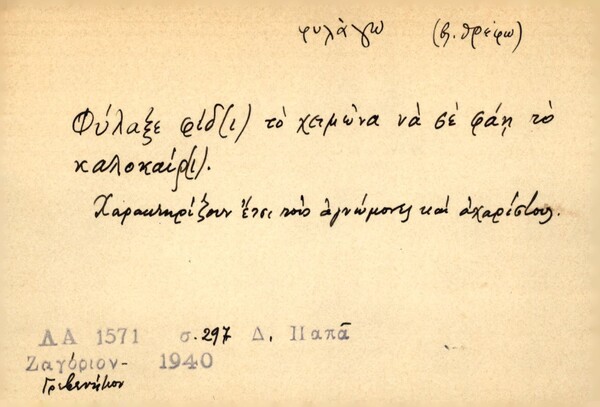 φυλάγω (βλ. θρέφω)
Φύλαξε φίδ(ι) τὸ χειμῶνα νὰ σὲ φάῃ τὸ
καλοκαίρ(ι).
Χαρακτηρίζουν ἔτσι τοὺς ἀγνώμονες καὶ ἀχαρίστους.
ΛΑ 1571 σ. 297 Δ. Παπᾶ
Ζαγόριον- 1940